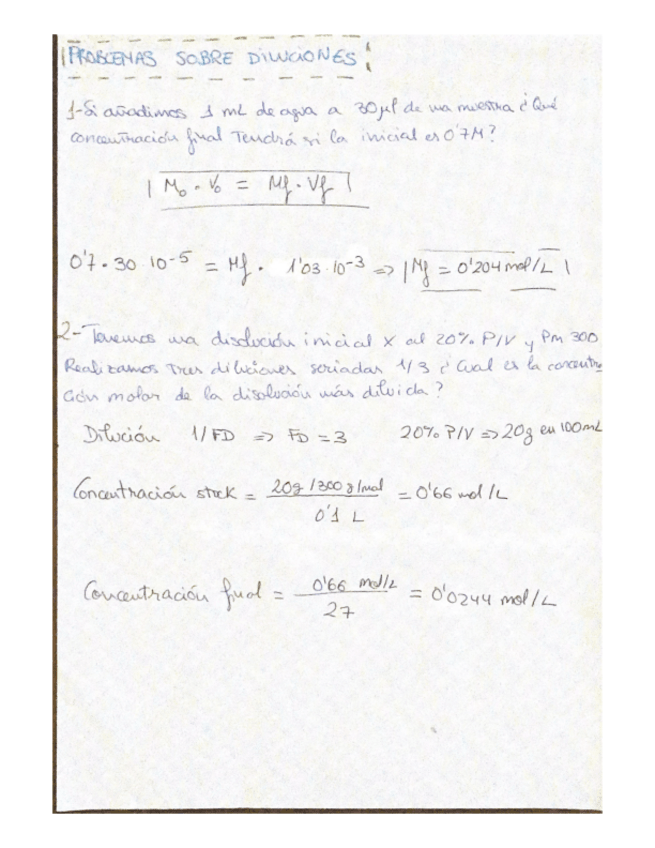 PROBLEMAS SOBRE DILUCIONES
1-Si añadimos 1 mL de agua a 30µl de una muestra ¿Qué
concentración final Tendrá si la inicial es 0'7M?
Mo · Vo = Mf · Vf
0'7 · 30 · 10⁻⁵ = Mf · 1'03 · 10⁻³ => Mf = 0'204 mol/L
2- Tenemos una disolución inicial X al 20% P/V y Pm 300
Realizamos Tres diluciones seriadas 1/3 ¿Cual es la concentra
ción molar de la disolución más diluida?
Dilución 1/FD => FD = 3 20% P/V => 20g en 100mL
Concentración stock = 20g/300g/mol / 0'1 L = 0'66 mol/L
Concentración final = 0'66 mol/L / 27 = 0'0244 mol/L